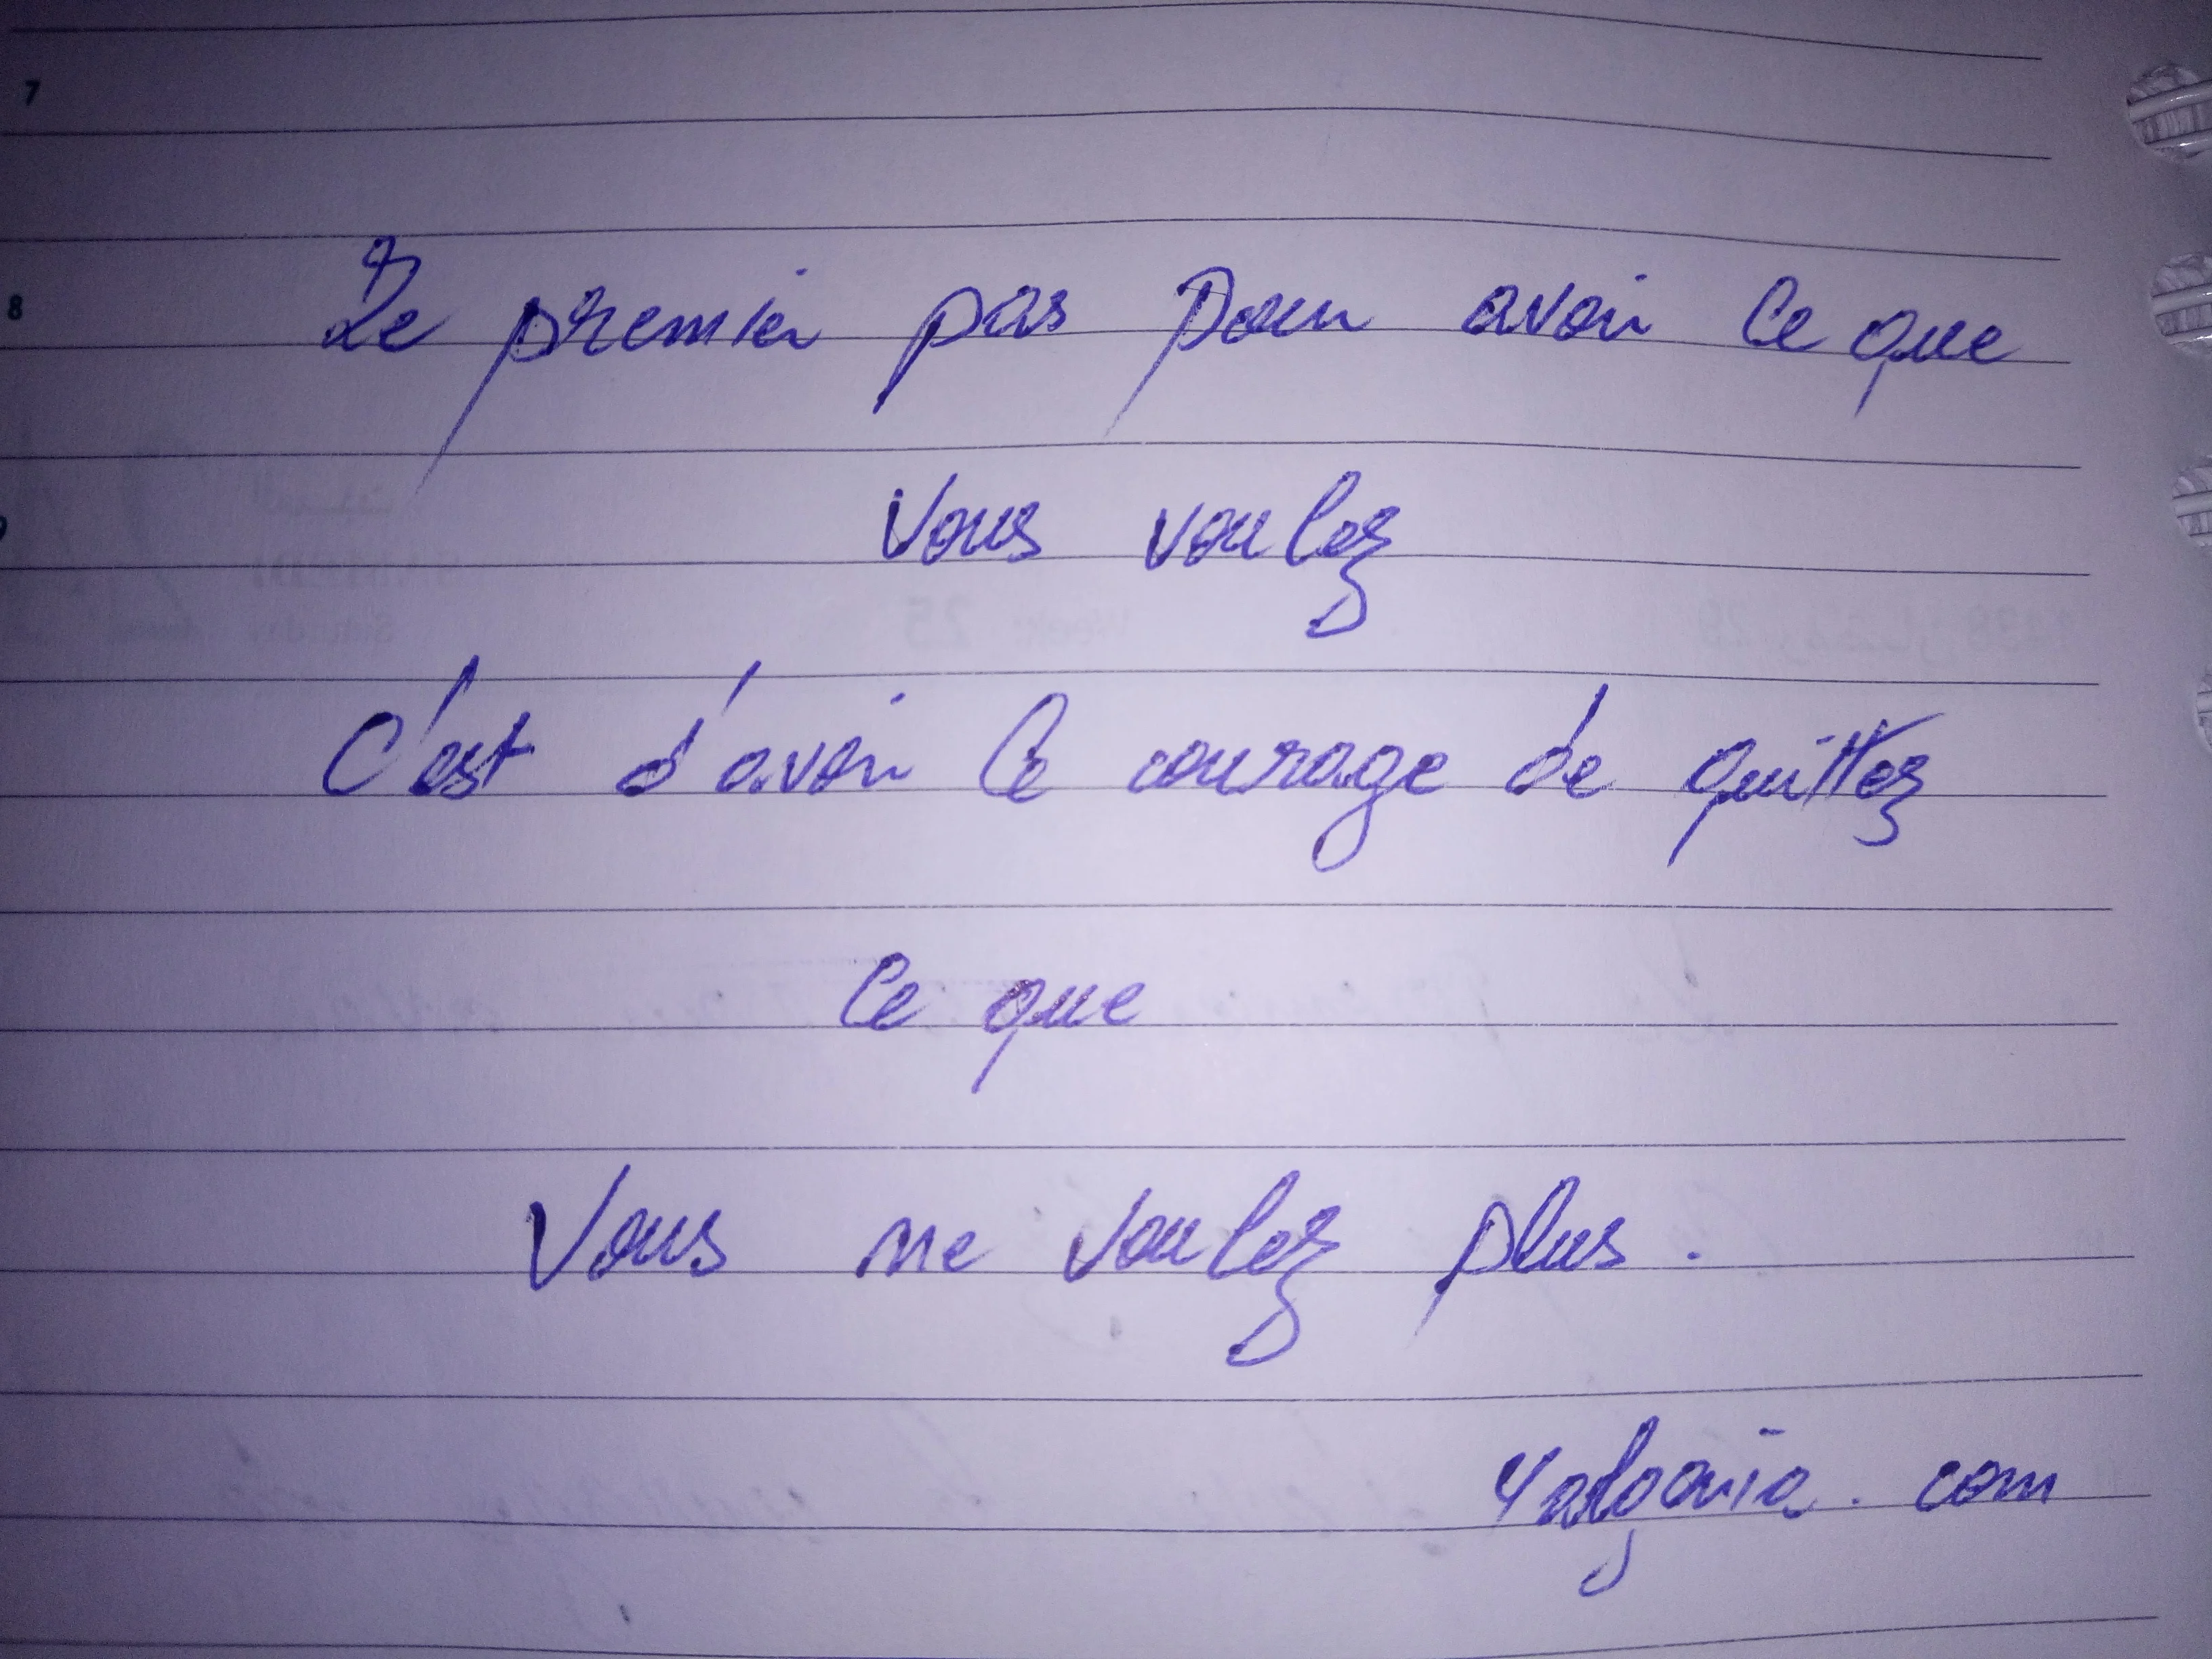 7
8
Le premier pas pour avoir ce que
vous voulez
C'est d'avoir le courage de quittez
ce que
Vous ne voulez plus.